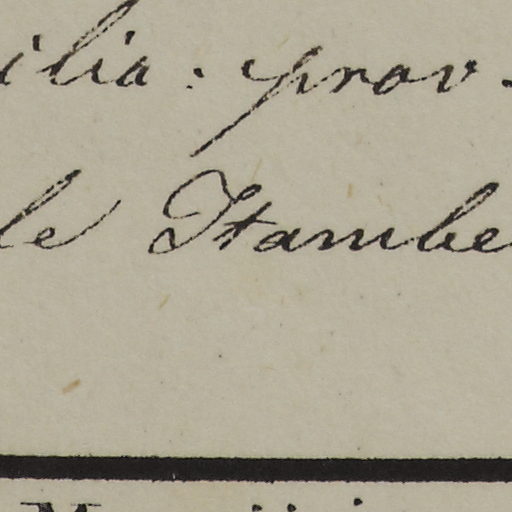 ilia : prov.
le Itambe